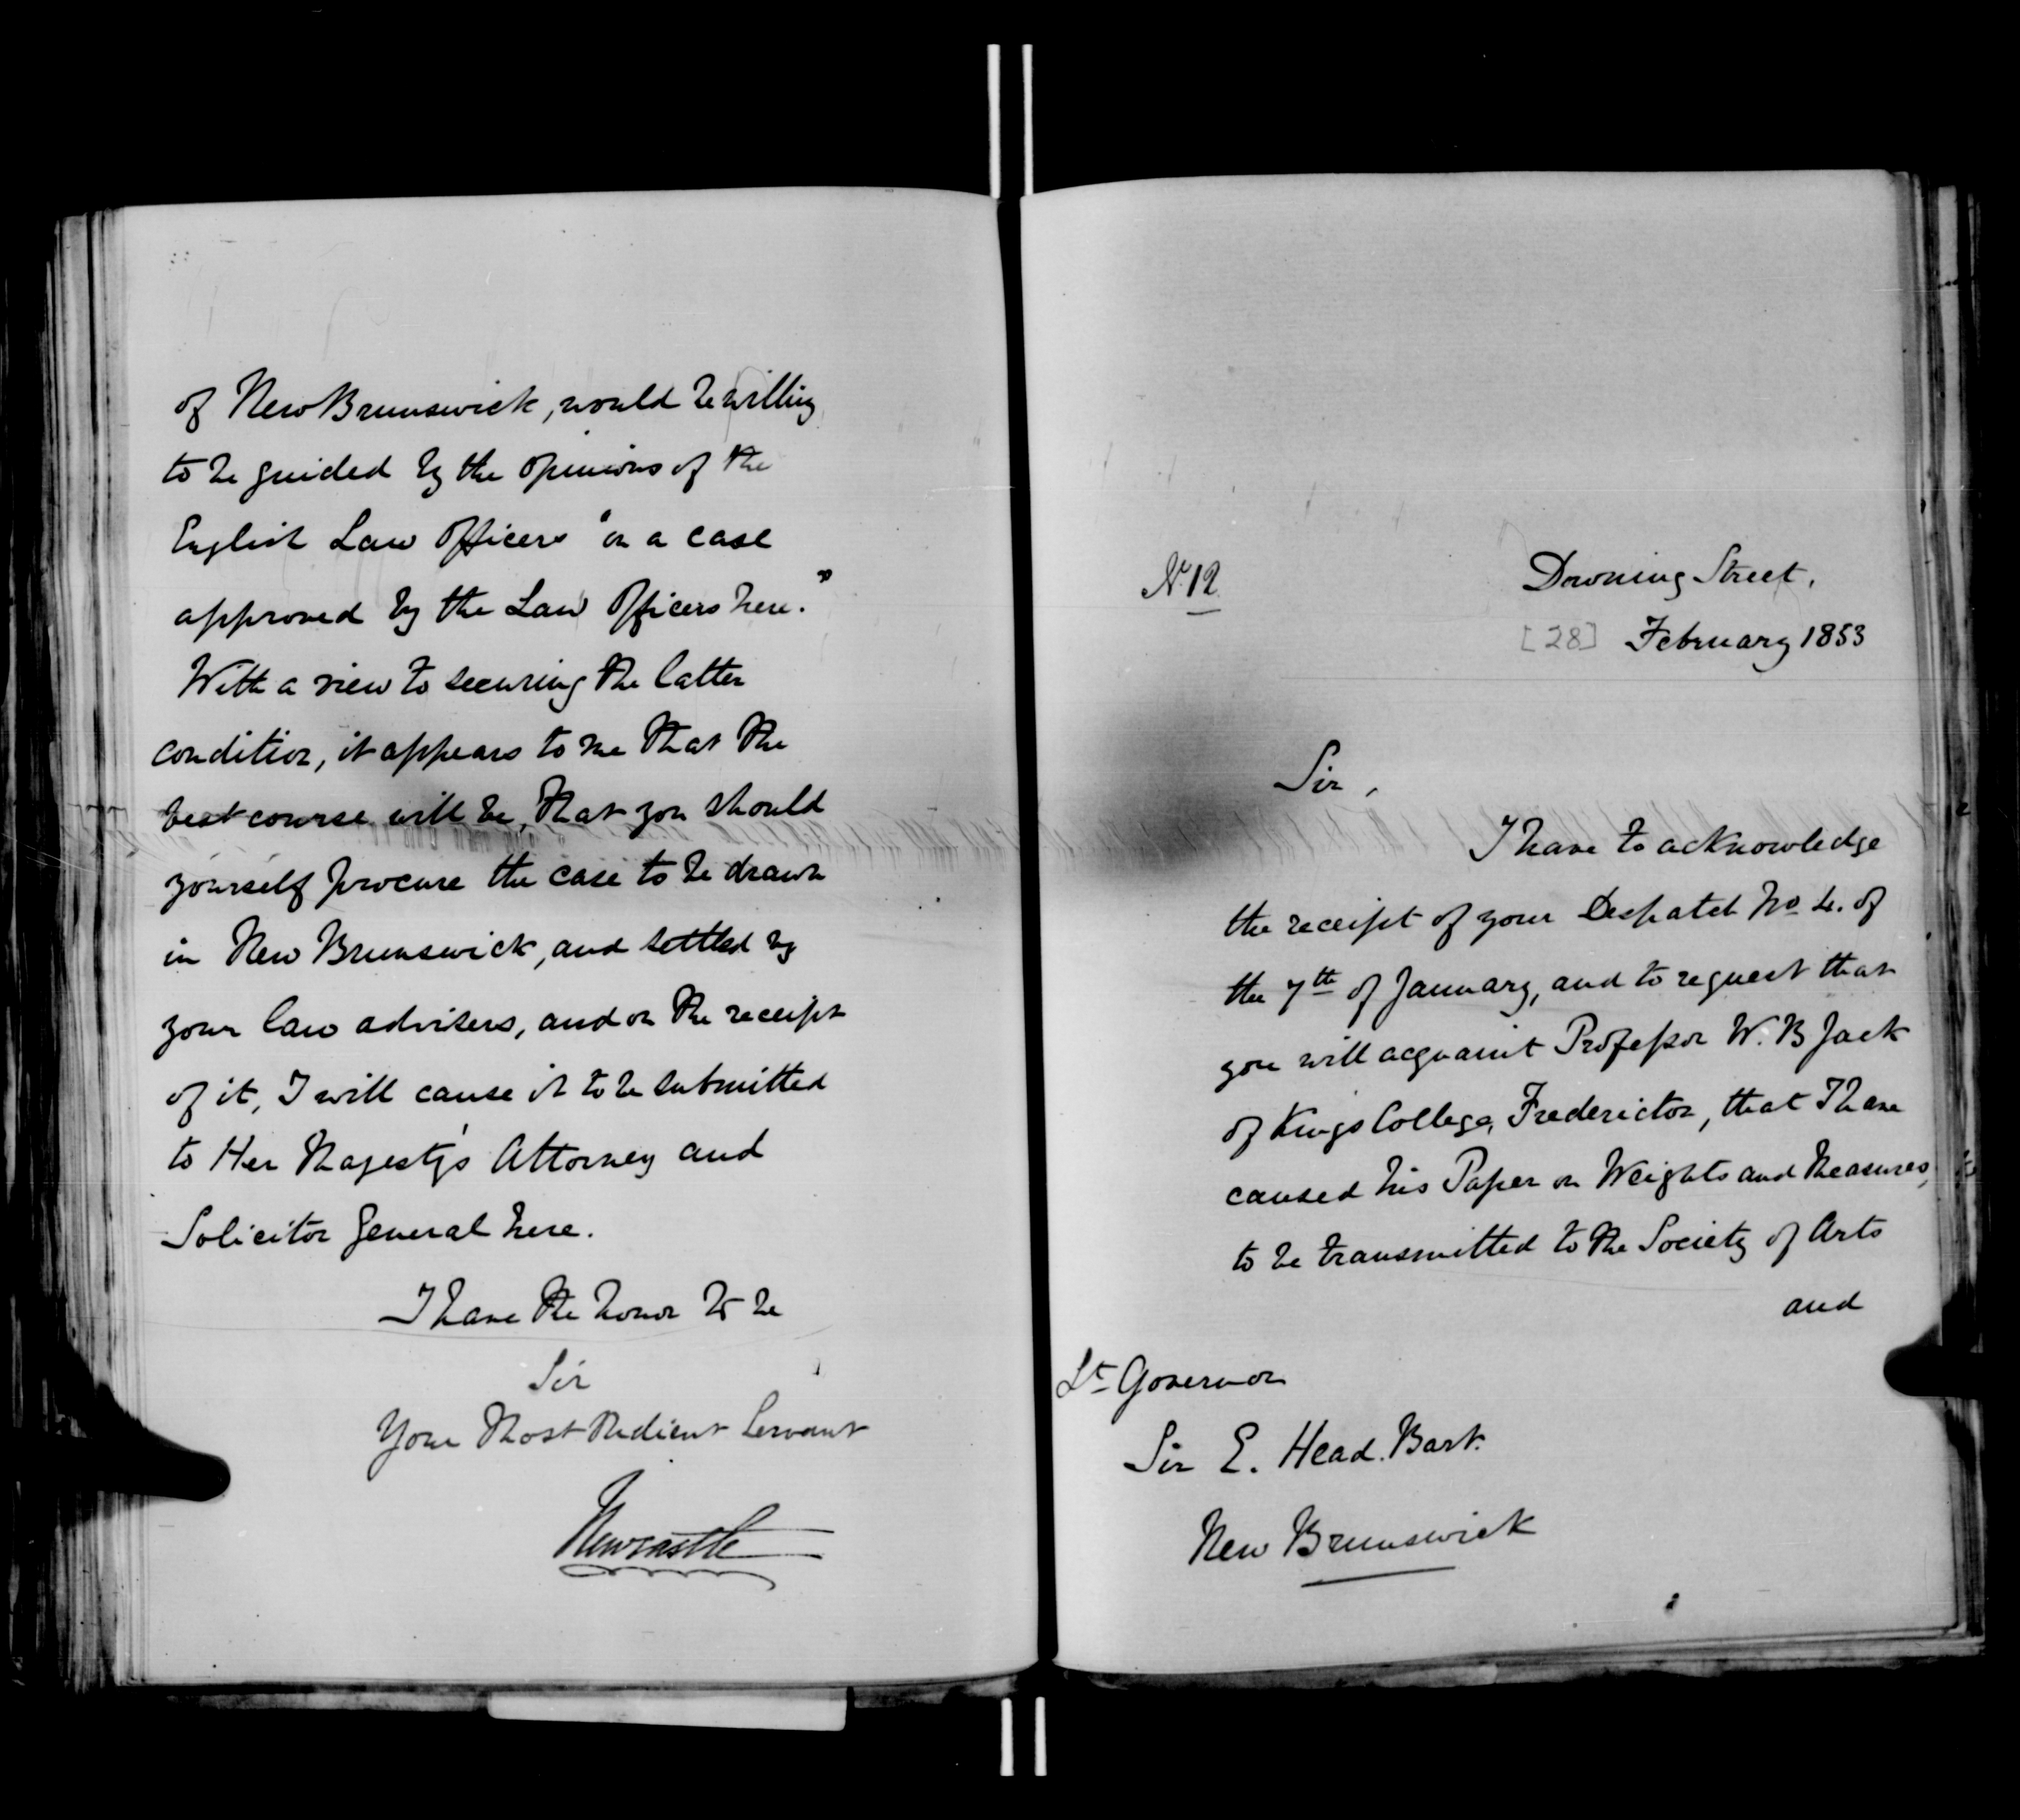 of New Brunswick, would be willing
to be guided by the opinions of the
English Law Officers "on a case
approved by the Law Officers here."
With a view to securing the latter
condition, it appears to me that the
best course will be, that you should
yourself procure the case to be drawn
in New Brunswick, and settled by
your law advisers, and on the receipt
of it, I will cause it to be submitted
to Her Majesty's Attorney and
Solicitor General here.
I have the honor to be
Sir
Your Most Obedient Servant
Newcastle
No. 12
Downing Street,
[28] February 1853
Sir,
I have to acknowledge
the receipt of your Despatch No. 4. of
the 7th of January, and to request that
you will acquaint Professor W. B Jack
of Kings College, Fredericton, that I have
caused his Paper on Weights and Measures,
to be transmitted to the Society of Arts
and
Lt Governor
Sir E. Head. Bart.
New Brunswick